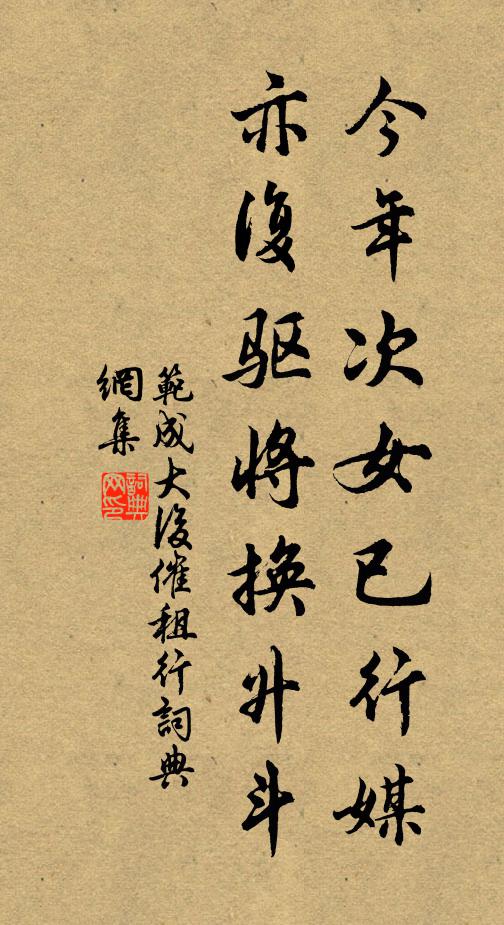 今年次女已行媒
亦復驱將換升斗
範成大後催租行詞典
網集
詞典
网印